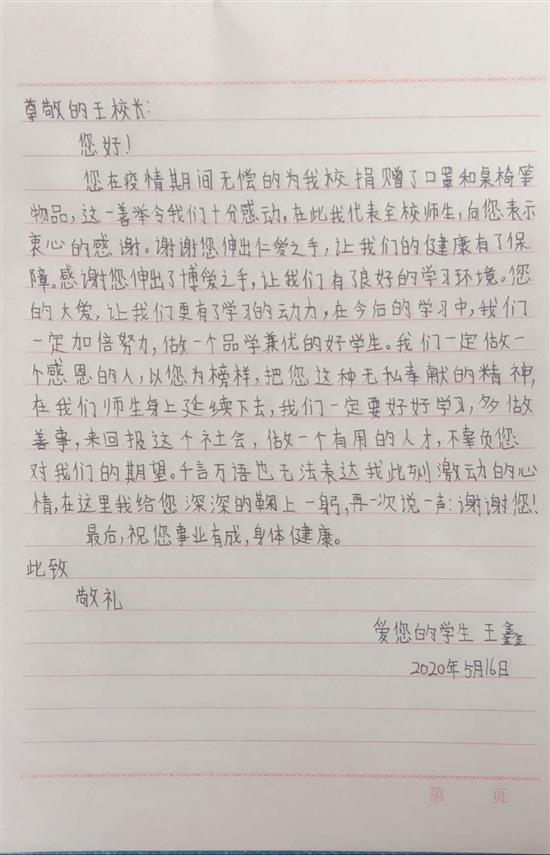 尊敬的王校长:
您好!
您在疫情期间无偿的为我校捐赠了口罩和桌椅等
物品,这一善举令我们十分感动,在此我代表全校师生,向您表示
衷心的感谢。谢谢您伸出仁爱之手,让我们的健康有了保
障。感谢您伸出了博爱之手,让我们有了良好的学习环境。您
的大爱,让我们更有了学习的动力,在今后的学习中,我们
一定加倍努力,做一个品学兼优的好学生。我们一定做一
个感恩的人,以您为榜样,把您这种无私奉献的精神,
在我们师生身上延续下去,我们一定要好好学习,多做
善事,来回报这个社会,做一个有用的人才,不辜负您
对我们的期望。千言万语也无法表达我此刻激动的心
情,在这里我给您深深的鞠上一躬,再一次说一声:谢谢您!
最后,祝您事业有成,身体健康。
此致
敬礼
爱您的学生 王鑫
2020年5月16日
第 页